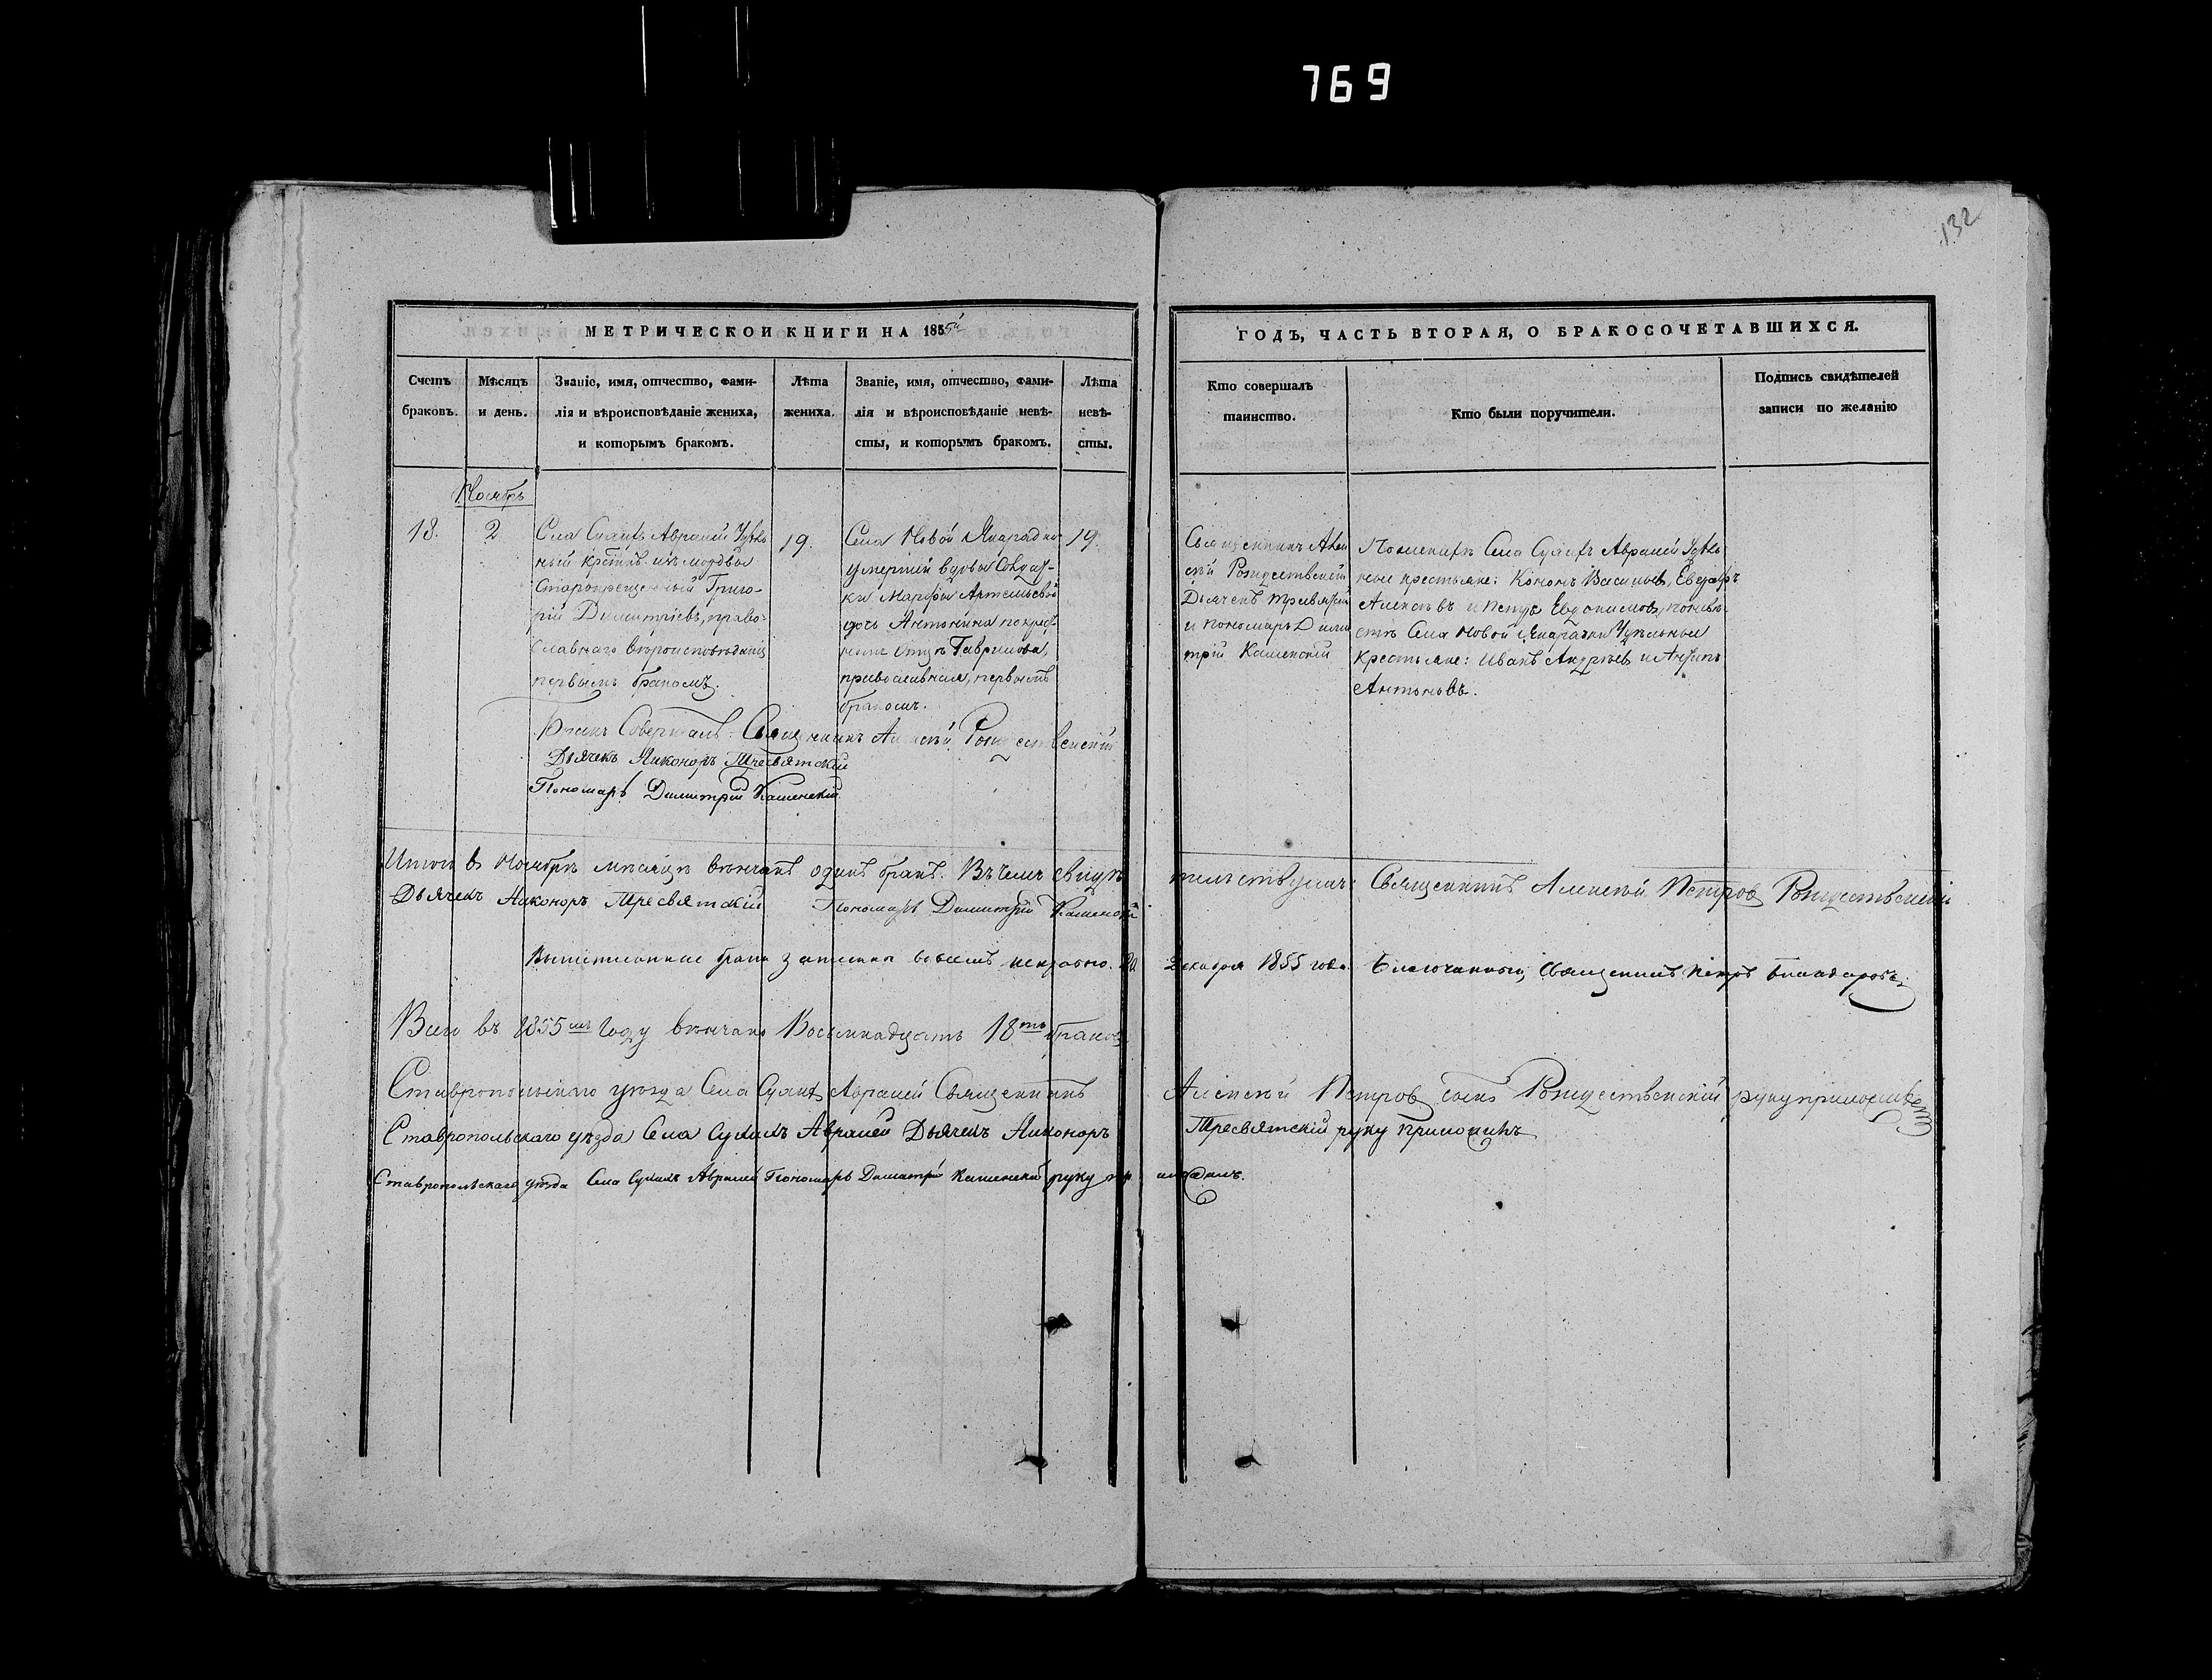 769
132
МЕТРИЧЕСКОЙ КНИГИ НА 1855й
ГОДЪ, ЧАСТЬ ВТОРАЯ, О БРАКОСОЧЕТАВШИХСЯ.
Счетъ
браковъ.
Мѣсяцъ
и день.
Званіе, имя, отчество, фами-
лія и вѣроисповѣданіе жениха,
и которымъ бракомъ.
Лѣта
жениха.
Званіе, имя, отчество, фами-
лія и вѣроисповѣданіе невѣ-
сты, и которымъ бракомъ.
Лѣта
невѣ-
сты.
Кто совершалъ
таинство.
Кто были поручители.
Подпись свидѣтелей
записи по желанію
Ноябрь
18.
2
Села Аврамей Удѣль
ный крстнъ изъ мордвы
Старокрещенный Григо-
рій Димитріевъ, право-
славнаго вѣроисповѣданія
первымъ бракомъ.
19.
Села Новой
умершей вдовы Солдат-
ки Марфы
дочь Антонина по крест-
ному отцу Гаврилова,
православная, первымъ
бракомъ.
19.
Священникъ Алек
сѣй Рождественскій
Дьячекъ Тресвятскій
и пономарь Дими
трій Каменскій
По женихѣ Села Аврамей Удѣль
ные крестьяне: Кононъ Васильевъ,
и Петръ Евдокимовъ, по невѣ
стѣ Села Новой Удѣльные
Крестьяне: Иванъ Андрѣевъ и
Антоновъ.
Бракъ Совершалъ: Священникъ Алексѣй Рождественскій
Дьячекъ Никоноръ Тресвятскій
Пономарь Димитрій Каменскій
Итого въ Ноябрѣ мѣсяцѣ вѣнчанъ одинъ бракъ. Въ чемъ свидѣ
тельствуемъ: Священникъ Алексѣй Петровъ Рождественскій
Дьячекъ Никоноръ Тресвятскій Пономарь Димитрій Каменскій
браки записаны во всемъ исправно. 20
Декабря 1855 года. Благочинный, Священникъ Петръ
Всего въ 1855мъ Году вѣнчано Восьмнадцать 18ть браковъ
Ставропольскаго уѣзда Села Аврамей Священникъ
Алексѣй Петровъ сынъ Рождественскій руку приложилъ
Ставропольскаго уѣзда Села Аврамей Дьячекъ Никоноръ
Тресвятскій руку приложилъ
Ставропольскаго уѣзда Села Аврамей Пономарь Димитрій Каменскій руку пр
иложилъ.